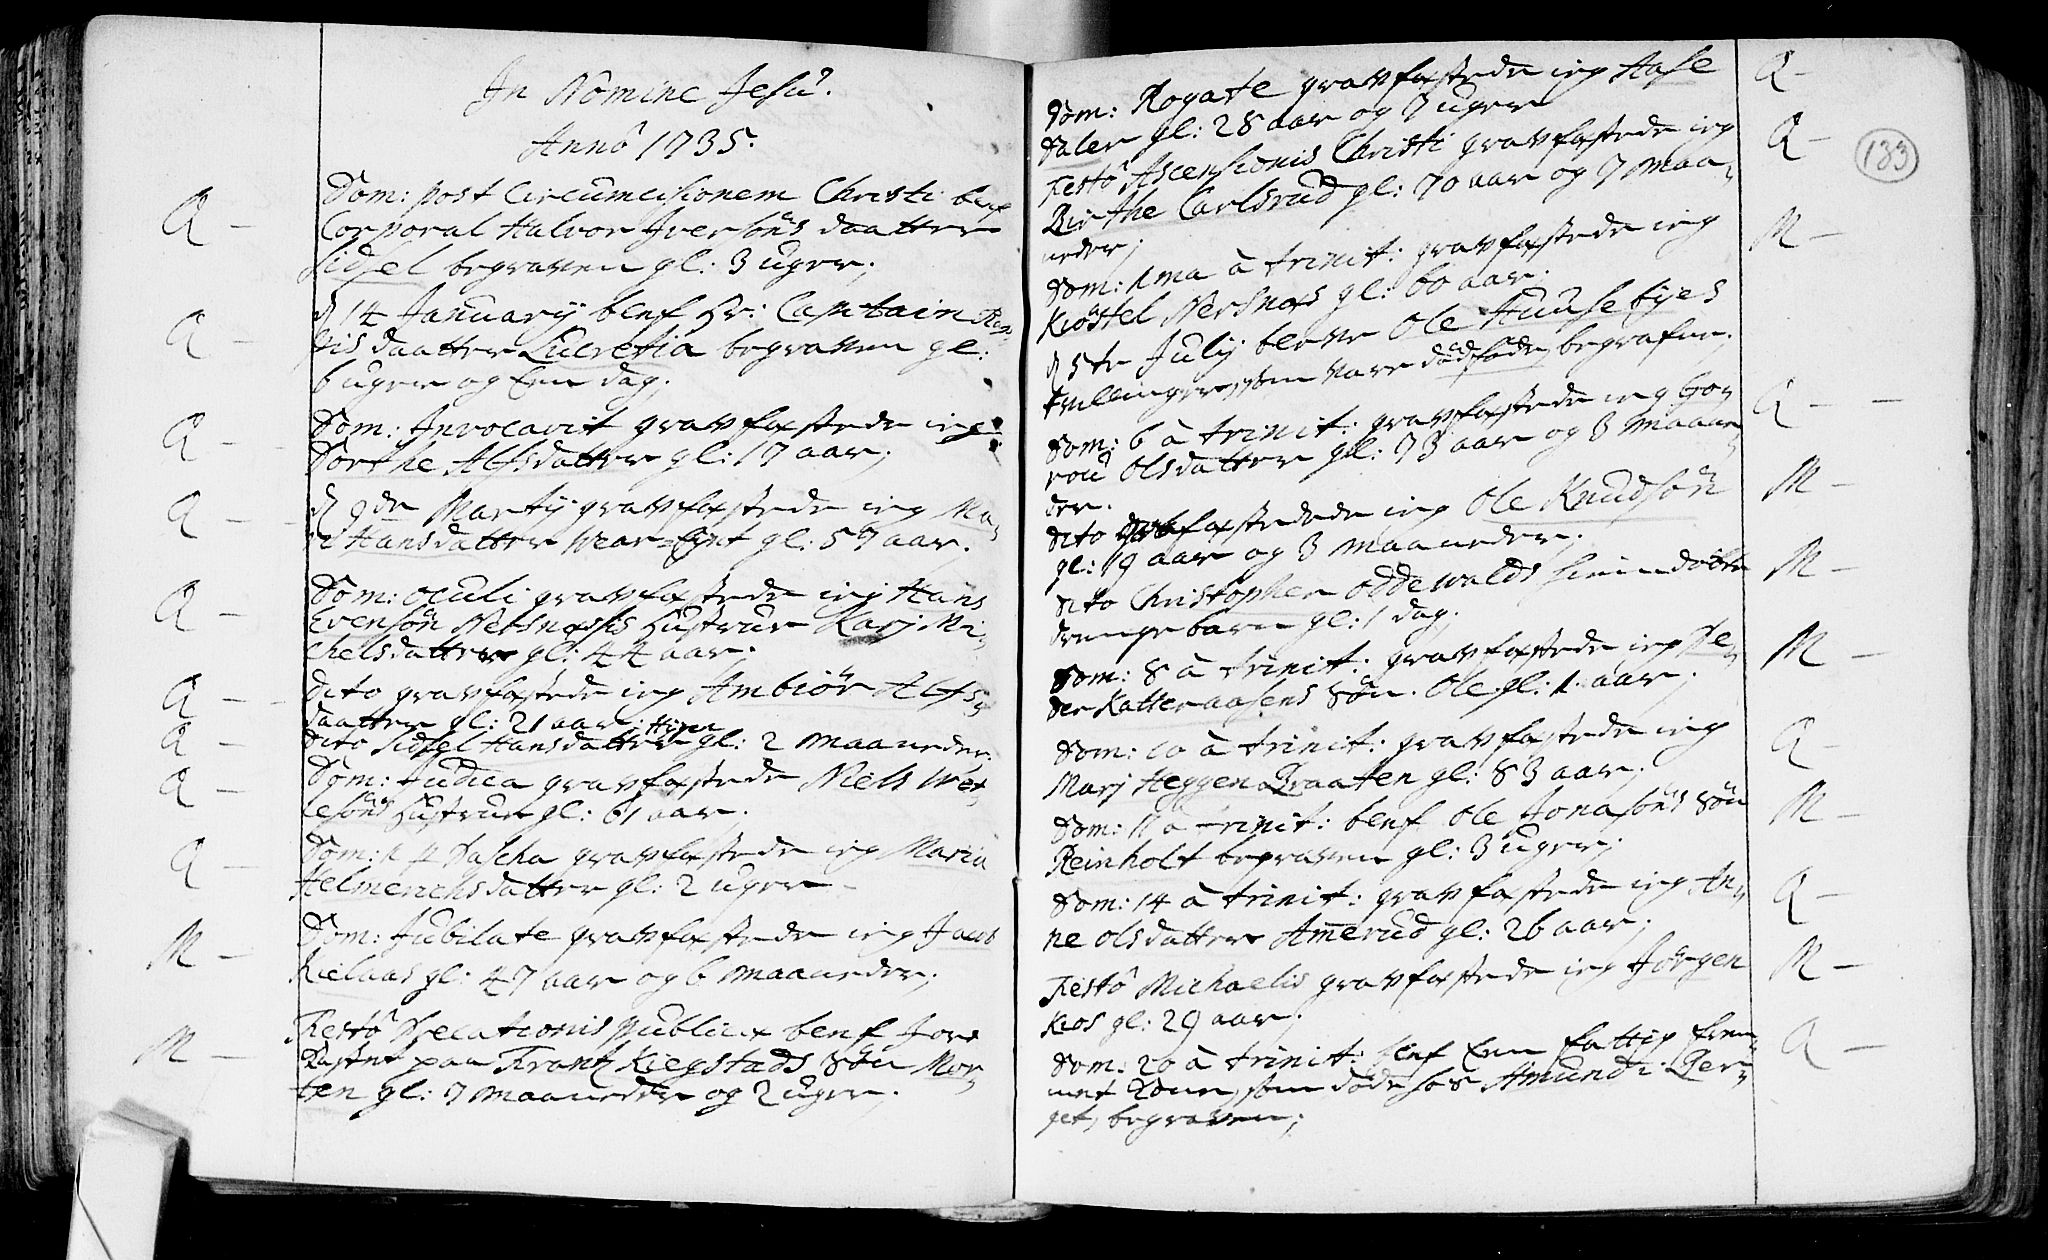 In Nomine Jesu.
Anno 1735.
Q - Dom: post Circumcisionem Christi blef
Corporal Halvor Jversöns daatter
Sidsel begraven gl: 3 uger;
Q - d 14 January blef Hr: Captain
daatter Lucretia begraven gl:
6 uger og Een dag.
Q - Dom: Invocavit gravfæstede ieg
Dorthe Alfsdatter gl: 17 aar;
Q - d 9de Marty gravfæstede ieg Ma,
ri Hansdatter gl: 57 aar.
Q - Dom: Oculi gravfæstede ieg Hans
Evensön Nersnæss Hustrue Karj Mi,
chelsdatter gl: 44 aar.
Q - Dito gravfæstede ieg Ambiör Alfs,
daatter gl: 21 aar;
Q - Dito Sidsel Hansdatter gl: 2 maaneder.
Q - Dom: Judica gravfæstede Niels Wet,
lesöns Hustrue gl: 61 aar.
Q - Dom: 1 p Pascha gravfæstede ieg Maria
Helmerichsdatter gl: 2 uger -
M - Dom: Jubilate gravfæstede ieg Jacob
Kielaas gl: 47 aar og 6 maaneder;
M - Festo Precationis publicæ blef
paa Frantz Kiegstads Sön Mor,
ten gl: 7 maaneder og 2 uger.
133
Dom: Rogate gravfæstede ieg Aase Q -
Daler gl: 28 aar og 3 uger
Festo Ascensionis Christi gravfæstede ieg Q -
Birthe Carlsrud gl: 70 aar og 7 maa,
neder;
Dom: 1ma à trinit: gravfæstede ieg M -
Kiöstel Nersnæs gl: 60 aar.
d 5te July bleve Ole Huusebyes
tvillinger, som vare dödföde, begrafne.
Dom: 6 à trinit: gravfæstede ieg Go, Q - -
rou Olsdatter gl: 73 aar og 3 maane,
der.
dito gravfæstede ieg Ole Knudsön M -
gl: 19 aar og 3 maaneder;
dito Christopher Oddewalds hiemdöbte M -
drengebarn gl: 1 dag;
Dom: 8 à trinit: gravfæstede ieg Pe, M -
der Katteraasens Sön Ole gl: 1 aar;
Dom: 10 à trinit: gravfæstede ieg Q -
Marj Heggen Braaten gl: 83 aar;
Dom: 11 à trinit: blef Ole Jonasöns Sön M -
Reinholt begraven gl: 3 uger;
Dom: 14 à trinit: gravfæstede ieg An, Q -
ne Olsdatter Amerud gl: 26 aar;
Festo Michaelis gravfæstede ieg Jörgen M -
Kios gl: 29 aar;
Dom: 20 à trinit: blef Een fattig frem, Q -
met Kone, som döde hos Amund i Ber,
get, begraven;